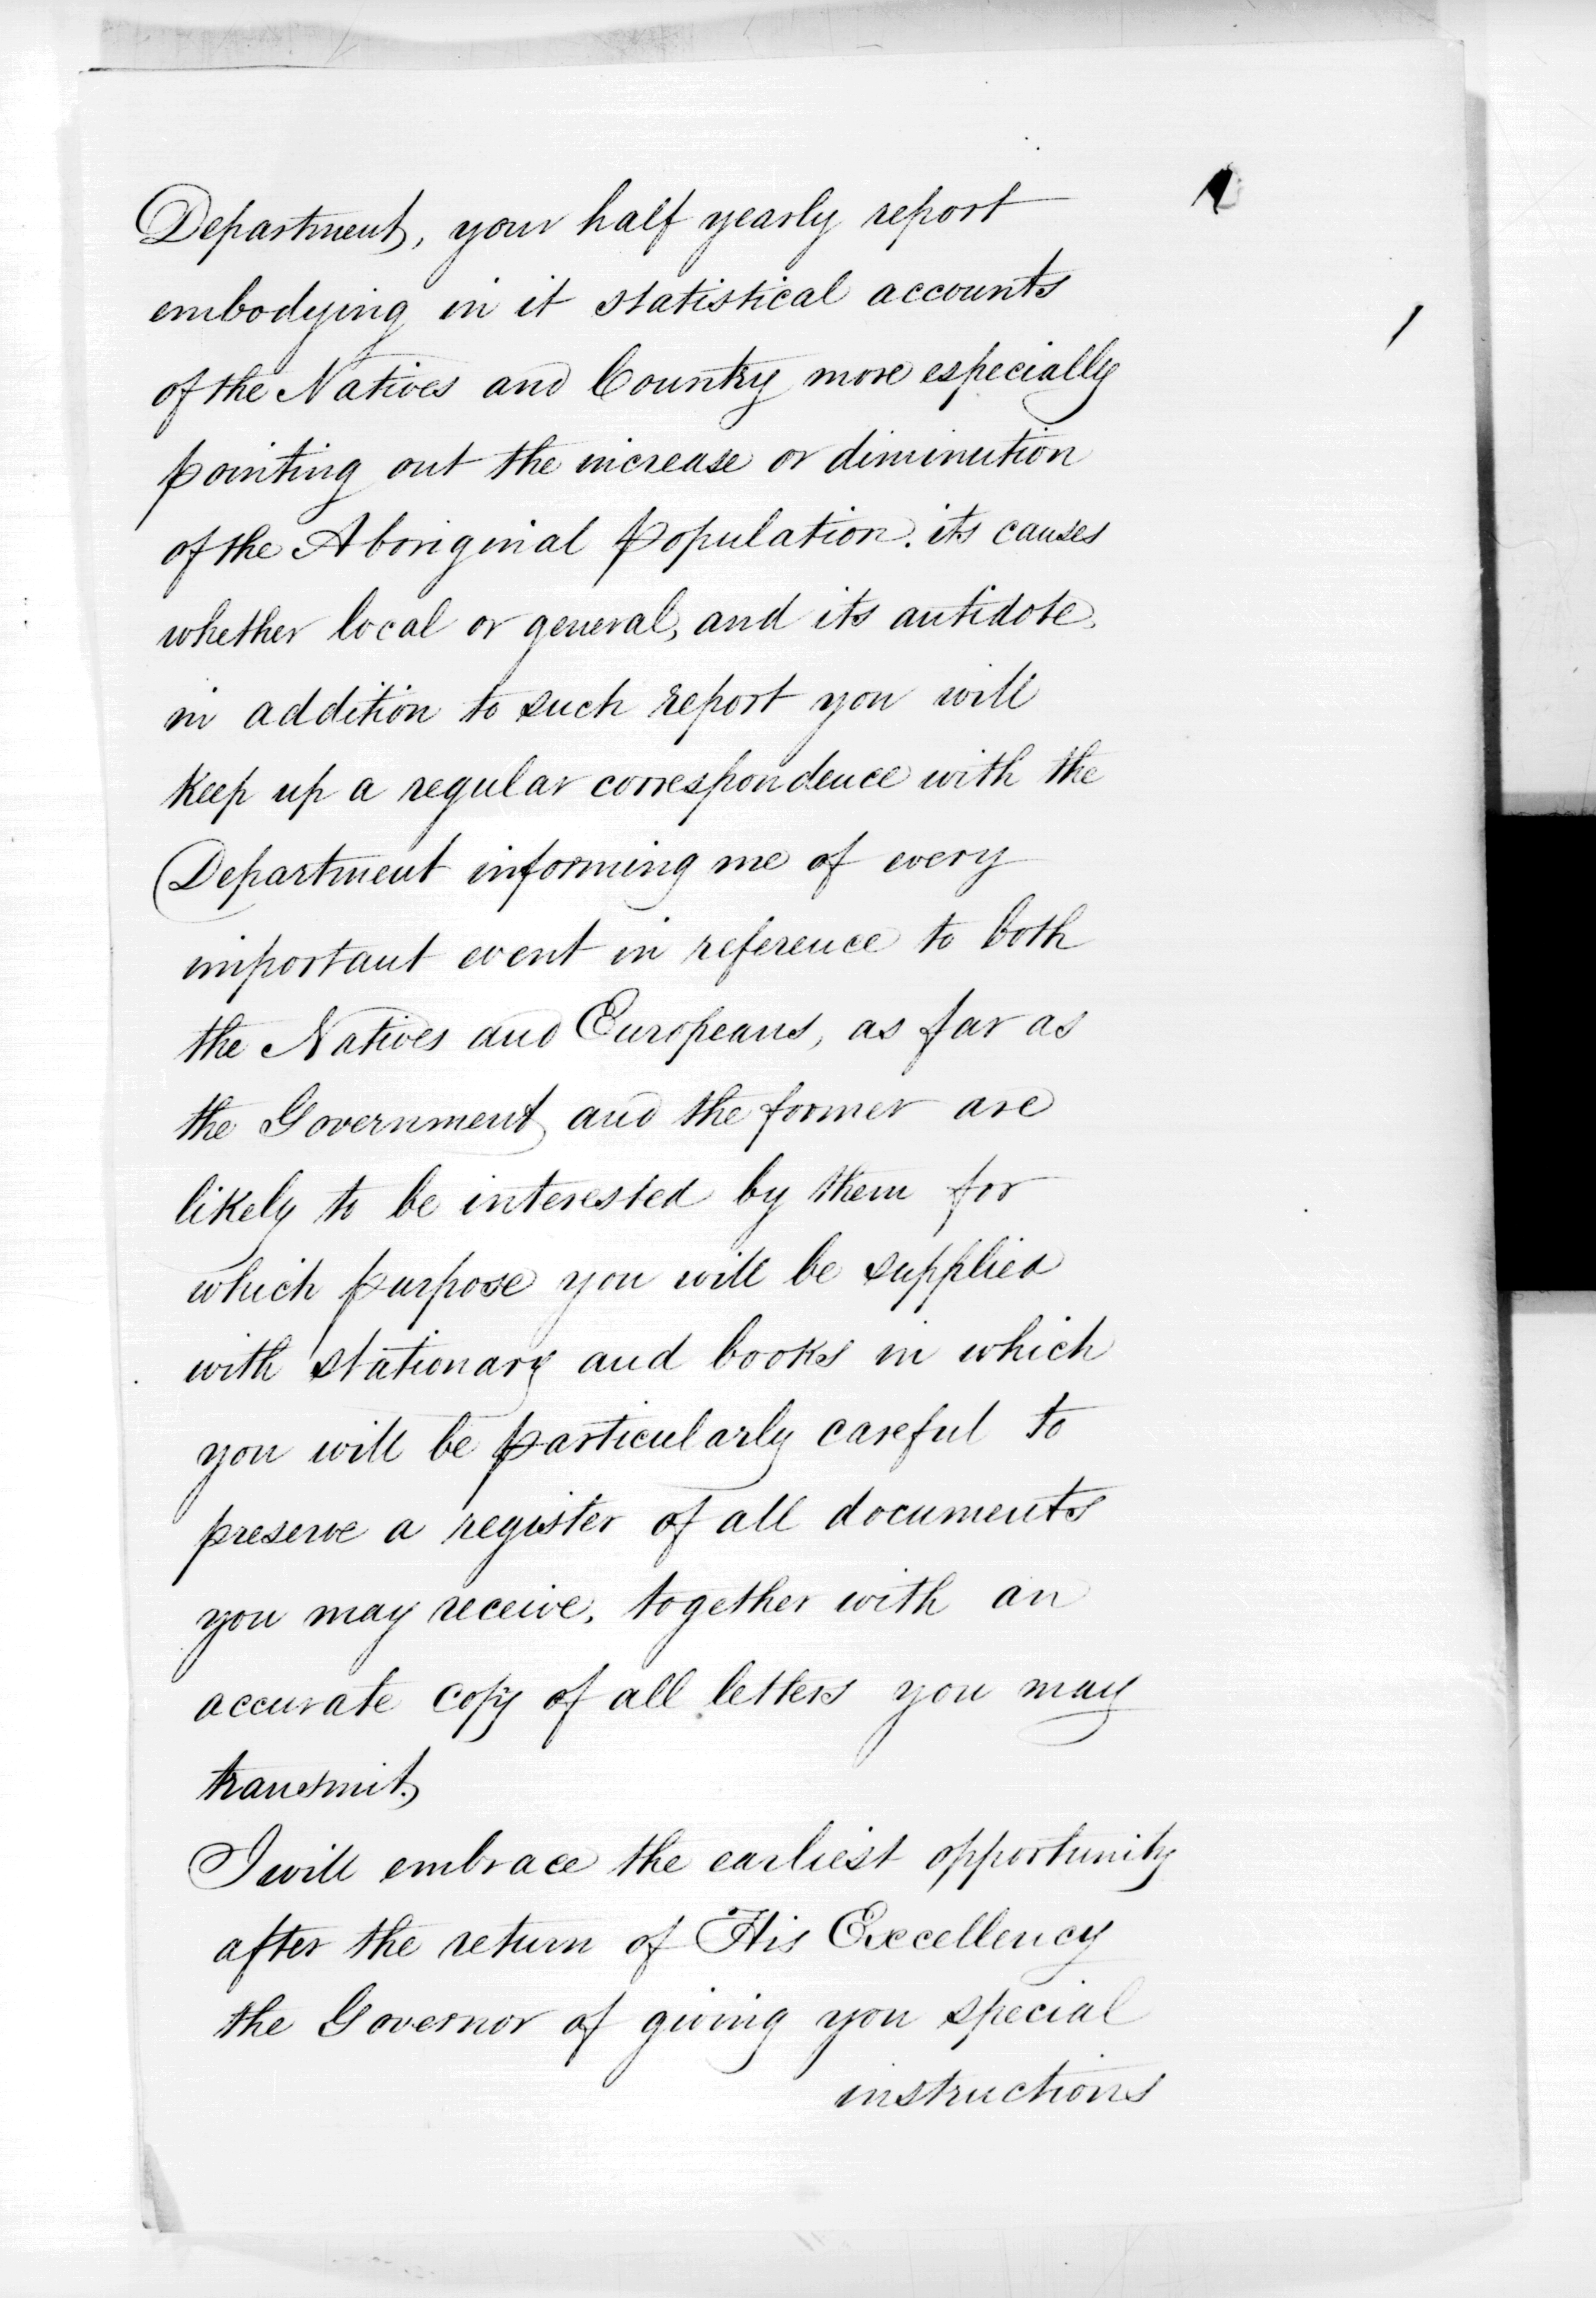 Department, your half yearly report
embodying in it statistical accounts
of the Natives and Country more especially
pointing out the increase or diminution
of the Aboriginal Population. its causes
whether local or general, and its antidote.
in addition to such report you will
keep up a regular correspondence with the
Department informing me of every
important event in reference to both
the Natives and Europeans, as far as
the Government and the former are
likely to be interested by them for
which purpose you will be supplied
with stationary and books in which
you will be particularly careful to
preserve a register of all documents
you may receive, together with an
accurate copy of all letters you may
transmit.
I will embrace the earliest opportunity
after the return of His Excellency
the Governor of giving you special
instructions